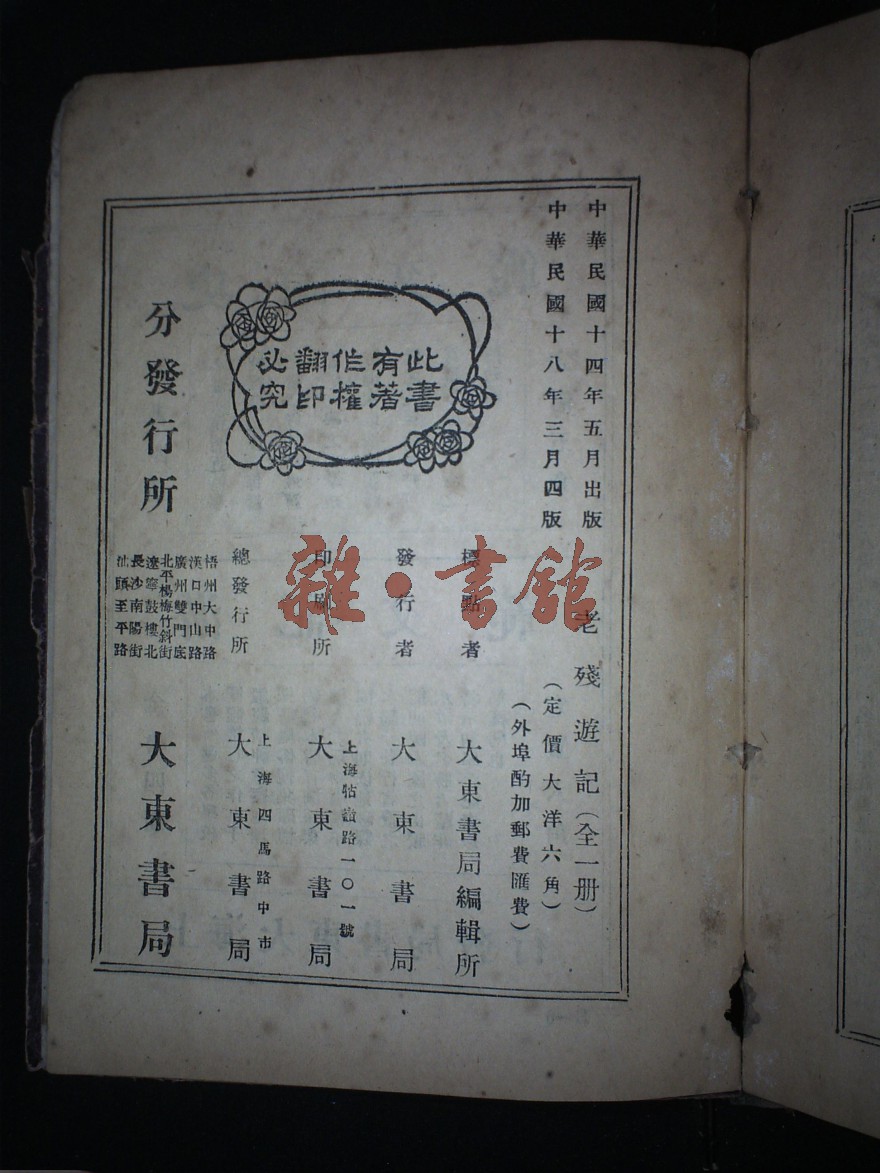 中華民國十四年五月出版
中華民國十八年三月四版
此書
有著
作權
翻印
必究
老殘遊記（全一册）
（定價大洋六角）
（外埠酌加郵費匯費）
標點者 大東書局編輯所
發行者 大東書局
印刷所 上海牯嶺路一〇一號
大東書局
總發行所 上海四馬路中市
大東書局
分發行所
梧州大中路
漢口中山路
廣州雙門底
北平楊梅竹斜街
遼寧鼓樓北
長沙南陽街
汕頭至平路
大東書局
雜·書館